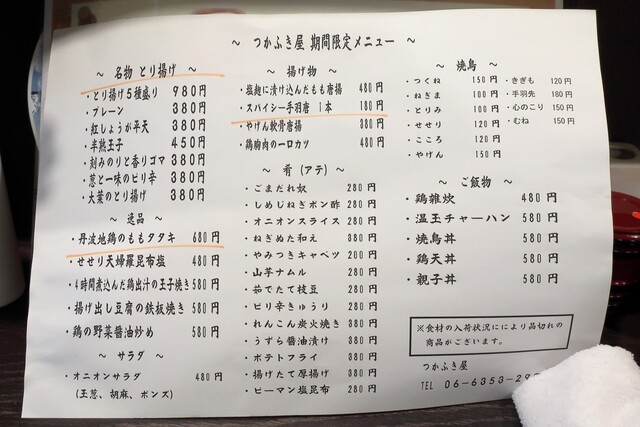 ～ つかふき屋 期間限定メニュー ～
～ 名物 とり揚げ ～
・とり揚げ5種盛り 980円
・プレーン 380円
・紅しょうが平天 380円
・半熟玉子 450円
・刻みのりと香りゴマ 380円
・葱と一味のピリ辛 380円
・大葉のとり揚げ 380円
～ 逸品 ～
・丹波地鶏のももタタキ 680円
・せせり天婦羅昆布塩 480円
・4時間煮込んだ鶏出汁の玉子焼き 580円
・揚げ出し豆腐の鉄板焼き 580円
・鶏の野菜醤油炒め 580円
～ サラダ ～
・オニオンサラダ 480円
(玉葱、胡麻、ポンズ)
～ 揚げ物 ～
・塩麹に漬け込んだもも唐揚 480円
・スパイシー手羽唐 1本 180円
・やげん軟骨唐揚 380円
・鶏胸肉の一ロカツ 480円
～ 肴 (アテ) ～
・ごまだれ奴 280円
・しめじねぎポン酢 280円
・オニオンスライス 280円
・ねぎぬた和え 380円
・やみつきキャベツ 200円
・山芋ナムル 280円
・茹でたて枝豆 280円
・ピリ辛きゅうり 280円
・れんこん炭火焼き 380円
・うずら醤油漬け 380円
・ポテトフライ 380円
・揚げたて厚揚げ 380円
・ピーマン塩昆布 280円
～ 焼鳥 ～
・つくね 150円
・ねぎま 100円
・とりみ 100円
・せせり 120円
・こころ 120円
・やげん 150円
・きぎも 120円
・手羽先 180円
・心のこり 150円
・むね 150円
～ ご飯物 ～
・鶏雑炊 480円
・温玉チャーハン 580円
・焼鳥丼 580円
・鶏天丼 580円
・親子丼 580円
※食材の入荷状況にににより品切れの
商品がございます。
つかふき屋
TEL 06-6353-29